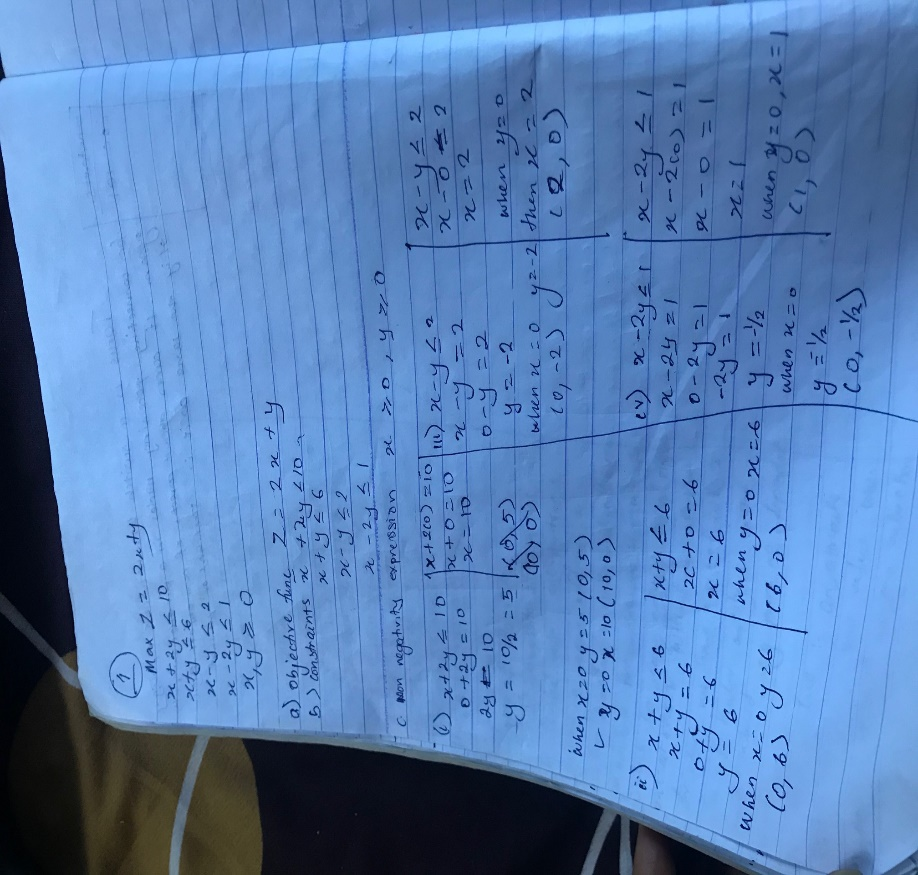 1
Max Z = 2x+y
x + 2y ≤ 10
x+y ≤ 6
x-y ≤ 2
x - 2y ≤ 1
x, y ≥ 0
a) objective func Z = 2x + y
b) constraints x + 2y ≤ 10
x + y ≤ 6
x - y ≤ 2
x - 2y ≤ 1
c non negativity expression x ≥ 0, y ≥ 0
(i) x+2y ≤ 10
0 + 2y = 10
2y = 10
y = 10/2 = 5
x+2(0) = 10
x + 0 = 10
x = 10
(0, 5)
(10, 0)
when x=0 y=5 (0, 5)
y=0 x=10 (10, 0)
ii) x + y ≤ 6
x + y = 6
0 + y = 6
y = 6
when x=0 y=6
(0, 6)
x+y ≤ 6
x+0 = 6
x = 6
when y=0 x=6
(6, 0)
iii) x - y ≤ 2
x - y = 2
0 - y = 2
y = -2
when x=0 y=-2
(0, -2)
x - y ≤ 2
x - 0 = 2
x = 2
when y=0
then x = 2
(2, 0)
iv) x - 2y ≤ 1
x - 2y = 1
0 - 2y = 1
-2y = 1
y = -1/2
when x=0
y = -1/2
(0, -1/2)
x - 2y ≤ 1
x - 2(0) = 1
x - 0 = 1
x = 1
when y=0, x=1
(1, 0)